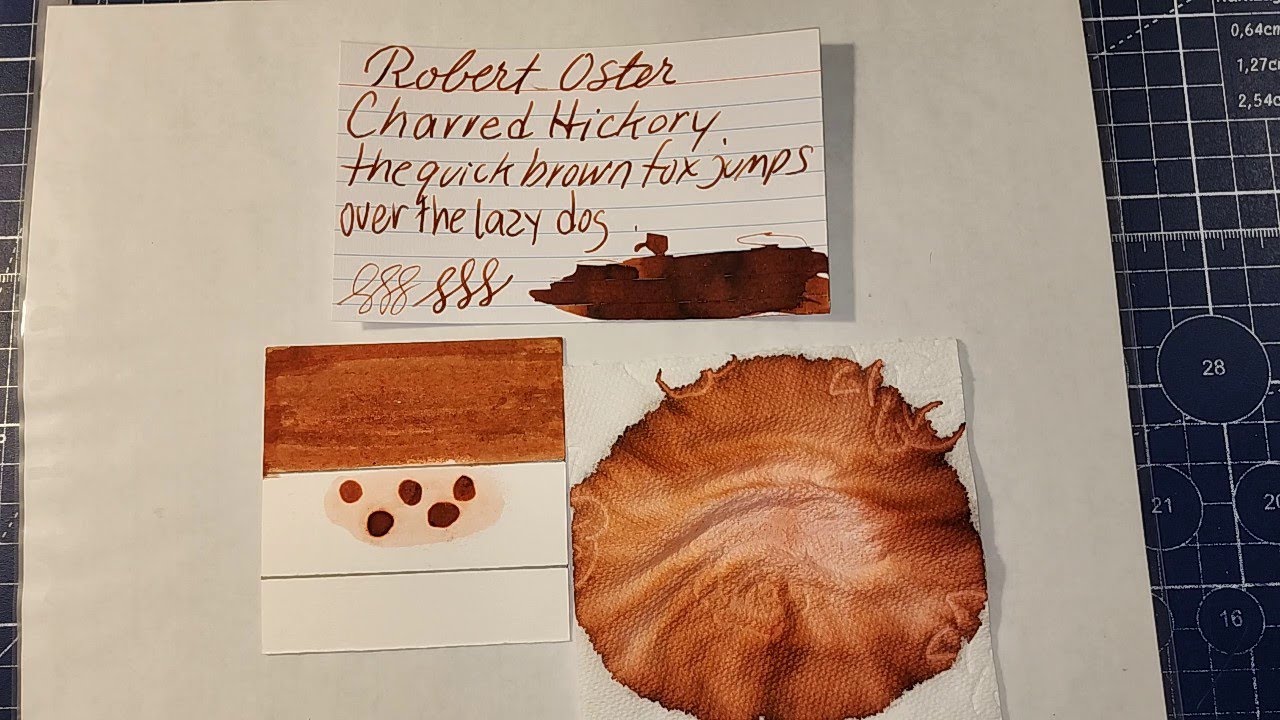 Robert Oster
Charred Hickory.
the quick brown fox jumps
over the lazy dog.
0,64cm
1,27cm
2,54c
28
21
16